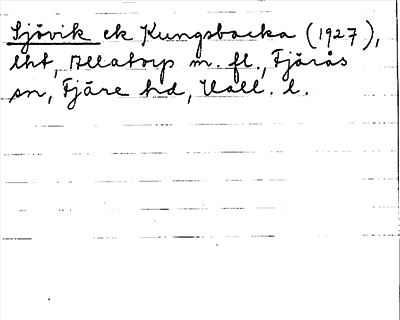 Sjövik ek Kungsbacka (1927),
lht, Allatorp m. fl., Fjärås
sn, Fjäre hd, Hall. l.